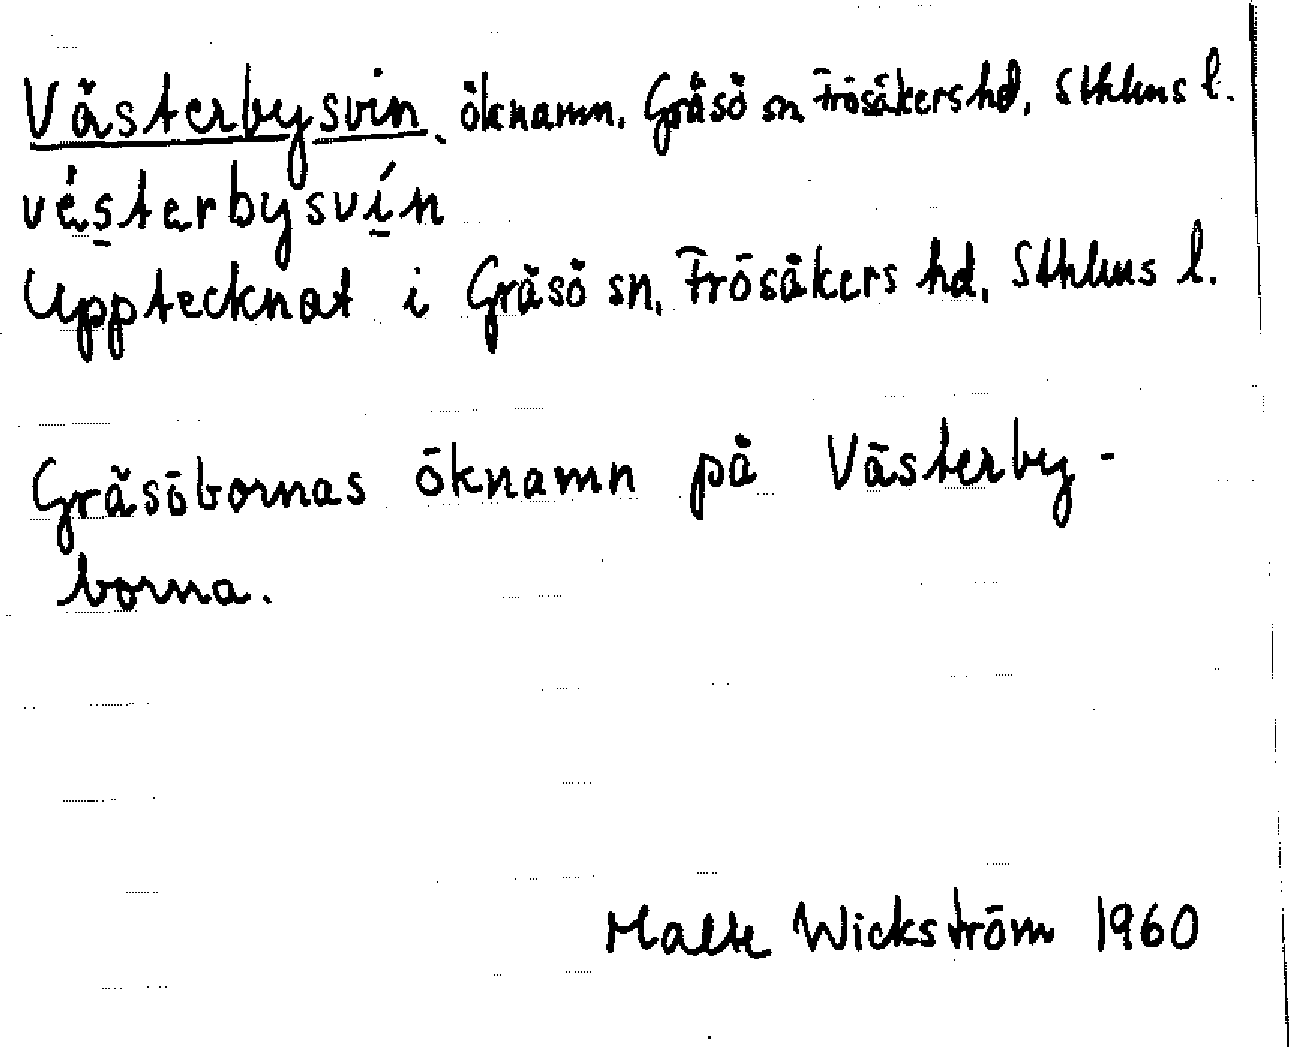 Västerbysvin, öknamn. Gräsö sn, Frösåkers hd, Sthlms l.
vésterbysvín
Upptecknat i Gräsö sn, Frösåkers hd, Sthlms l.
Gräsöbornas öknamn på Västerby-
borna.
Malte Wickström 1960